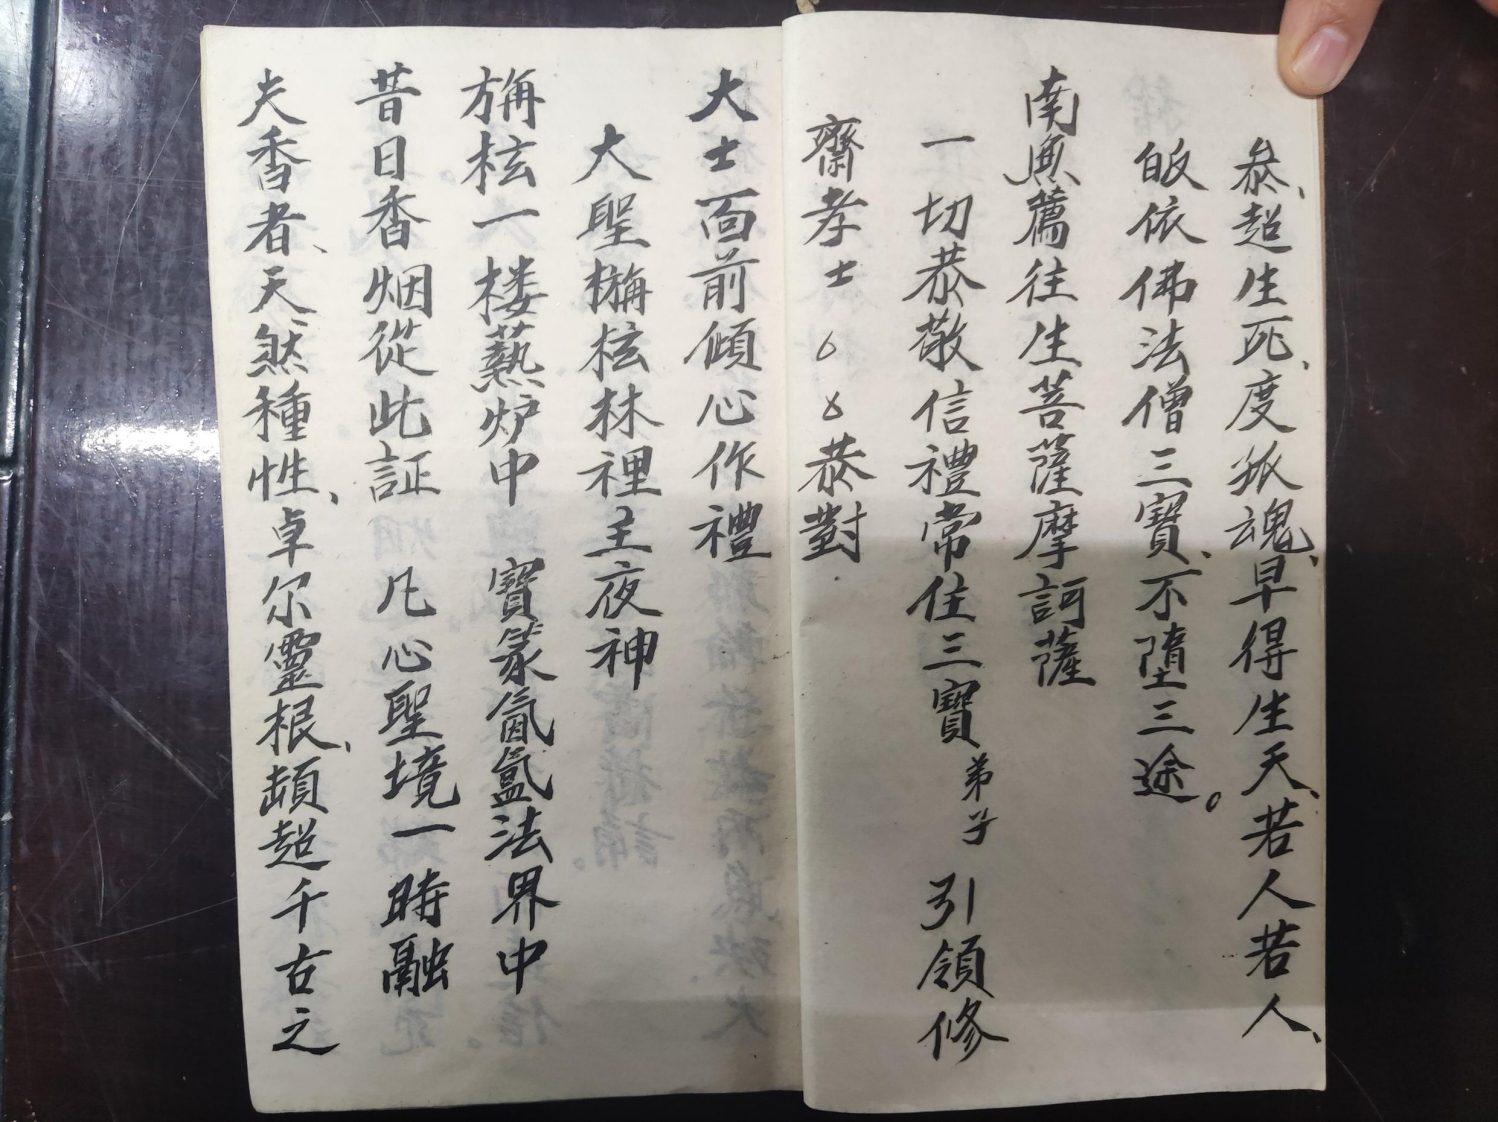 叅、超生死、度孤魂、早得生天、若人若人、
皈依佛法僧三寶、不墮三途。
南無薦往生菩薩摩訶薩
一切恭敬信禮常住三寶弟子 引領修
齋孝士 恭對
大士面前傾心作禮
大聖栴林裡主夜神
一樓爇炉中 寶篆氤氳法界中
昔日香烟從此証 凡心聖境一時融
夫香者、天然種性、卓尔靈根、頓超千古之